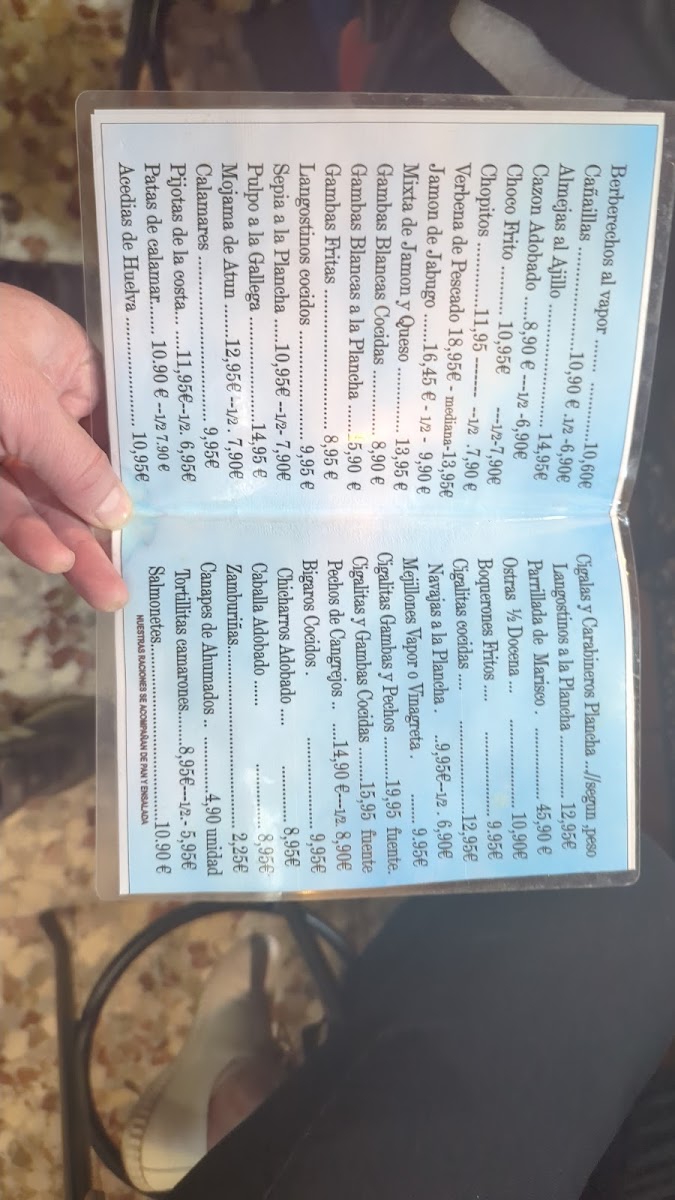 Berberechos al vapor ....... ..............10,60€
Cañaillas ........................10,90 € .1/2 -6,90€
Almejas al Ajillo ........................... 14,95€
Cazon Adobado .....8,90 € ---1/2 -6,90€
Choco Frito .......... 10,95€ ---1/2-7,90€
Chopitos ..............11,95 ------ --1/2 .7,90 €
Verbena de Pescado 18,95€ - mediana-13,95€
Jamon de Jabugo .....16,45 € - 1/2 - 9,90 €
Mixta de Jamon y Queso ............ 13,95 €
Gambas Blancas Cocidas ............ 8,90 €
Gambas Blancas a la Plancha ....... 5,90 €
Gambas Fritas ............................ 8,95 €
Langostinos cocidos ..................... 9,95 €
Sepia a la Plancha .....10,95€ --1/2- 7,90€
Pulpo a la Gallega .....................14,95 €
Mojama de Atun ......12,95€ --1/2 . 7,90€
Calamares ................................. 9,95€
Pijotas de la costa... ....11,95€--1/2. 6,95€
Patas de calamar..... 10.90 € --1/2 7.90 €
Acedias de Huelva ..................... 10,95€
Cigalas y Carabineros Plancha ...//segun ,peso
Langostinos a la Plancha .............. 12,95€
Parrillada de Marisco . ............... 45,90 €
Ostras ½ Docena ... .................. 10,90€
Boquerones Fritos .... ................. 9.95€
Cigalitas cocidas .... ...................12,95€
Navajas a la Plancha . ..9,95€--1/2 . 6,90€
Mejillones Vapor o Vinagreta . ....... 9.95€
Cigalitas Gambas y Pechos ..........19,95 fuente.
Cigalitas y Gambas Cocidas ........15,95 fuente
Pechos de Cangrejos .. ....14,90 €---1/2 8,90€
Bigaros Cocidos . ................... 9,95€
Chicharros Adobado .... ............ 8,95€
Caballa Adobado ...... ............... 8,95€
Zamburiñas...................................... 2,25€
Canapes de Ahumados .. ...........4,90 unidad
Tortillitas camarones.......8,95€---1/2.- 5,95€
Salmonetes...................................10.90 €
NUESTRAS RACIONES SE ACOMPAÑAN DE PAN Y ENSALADA